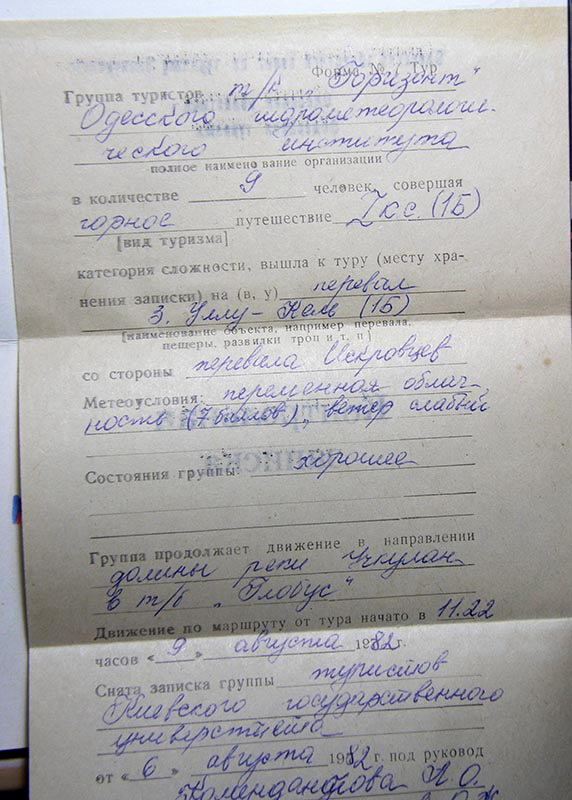 Форма № 1 Тур
Группа туристов т/к „Горизонт"
Одесского гидрометеорологи-
ческого института
полное наимено вание организации
в количестве 9 человек, совершая
горное путешествие I к.с. (1Б)
[вид туризма]
категория сложности, вышла к туру (месту хра-
нения записки) на (в, у) перевал
З. Уллу-Кель (1Б)
[наименование объекта, например перевала,
пещеры, развилки троп и т. п]
со стороны перевала Искровцев
Метеоусловия: переменная облач-
ность (7 баллов), ветер слабый
Состояния группы: хорошее
Группа продолжает движение в направлении
долины реки Учкулан
в т/б „Глобус"
Движение по маршруту от тура начато в 11.22
часов «9» августа 1982 г.
Снята записка группы туристов
Киевского государственного
университета
от «6» августа 1982 г. под руковод
А.О.